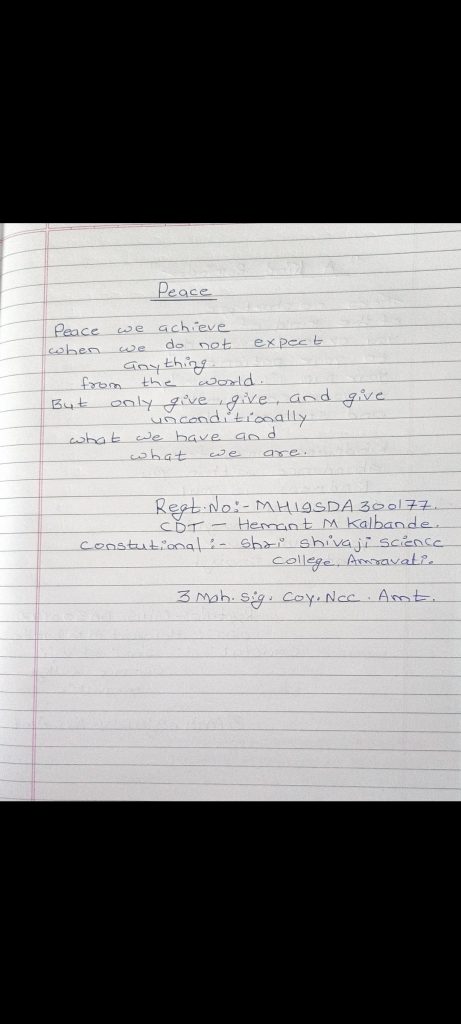 Peace
Peace we achieve
when we do not expect
anything.
from the world.
But only give, give, and give
unconditionally
what we have and
what we are.
Regt. No:- MH19SDA300177.
CDT - Hemant M Kalbande.
Constutional :- Shri Shivaji Science
College, Amravati.
3 Mah. Sig. Coy. Ncc. Amt.